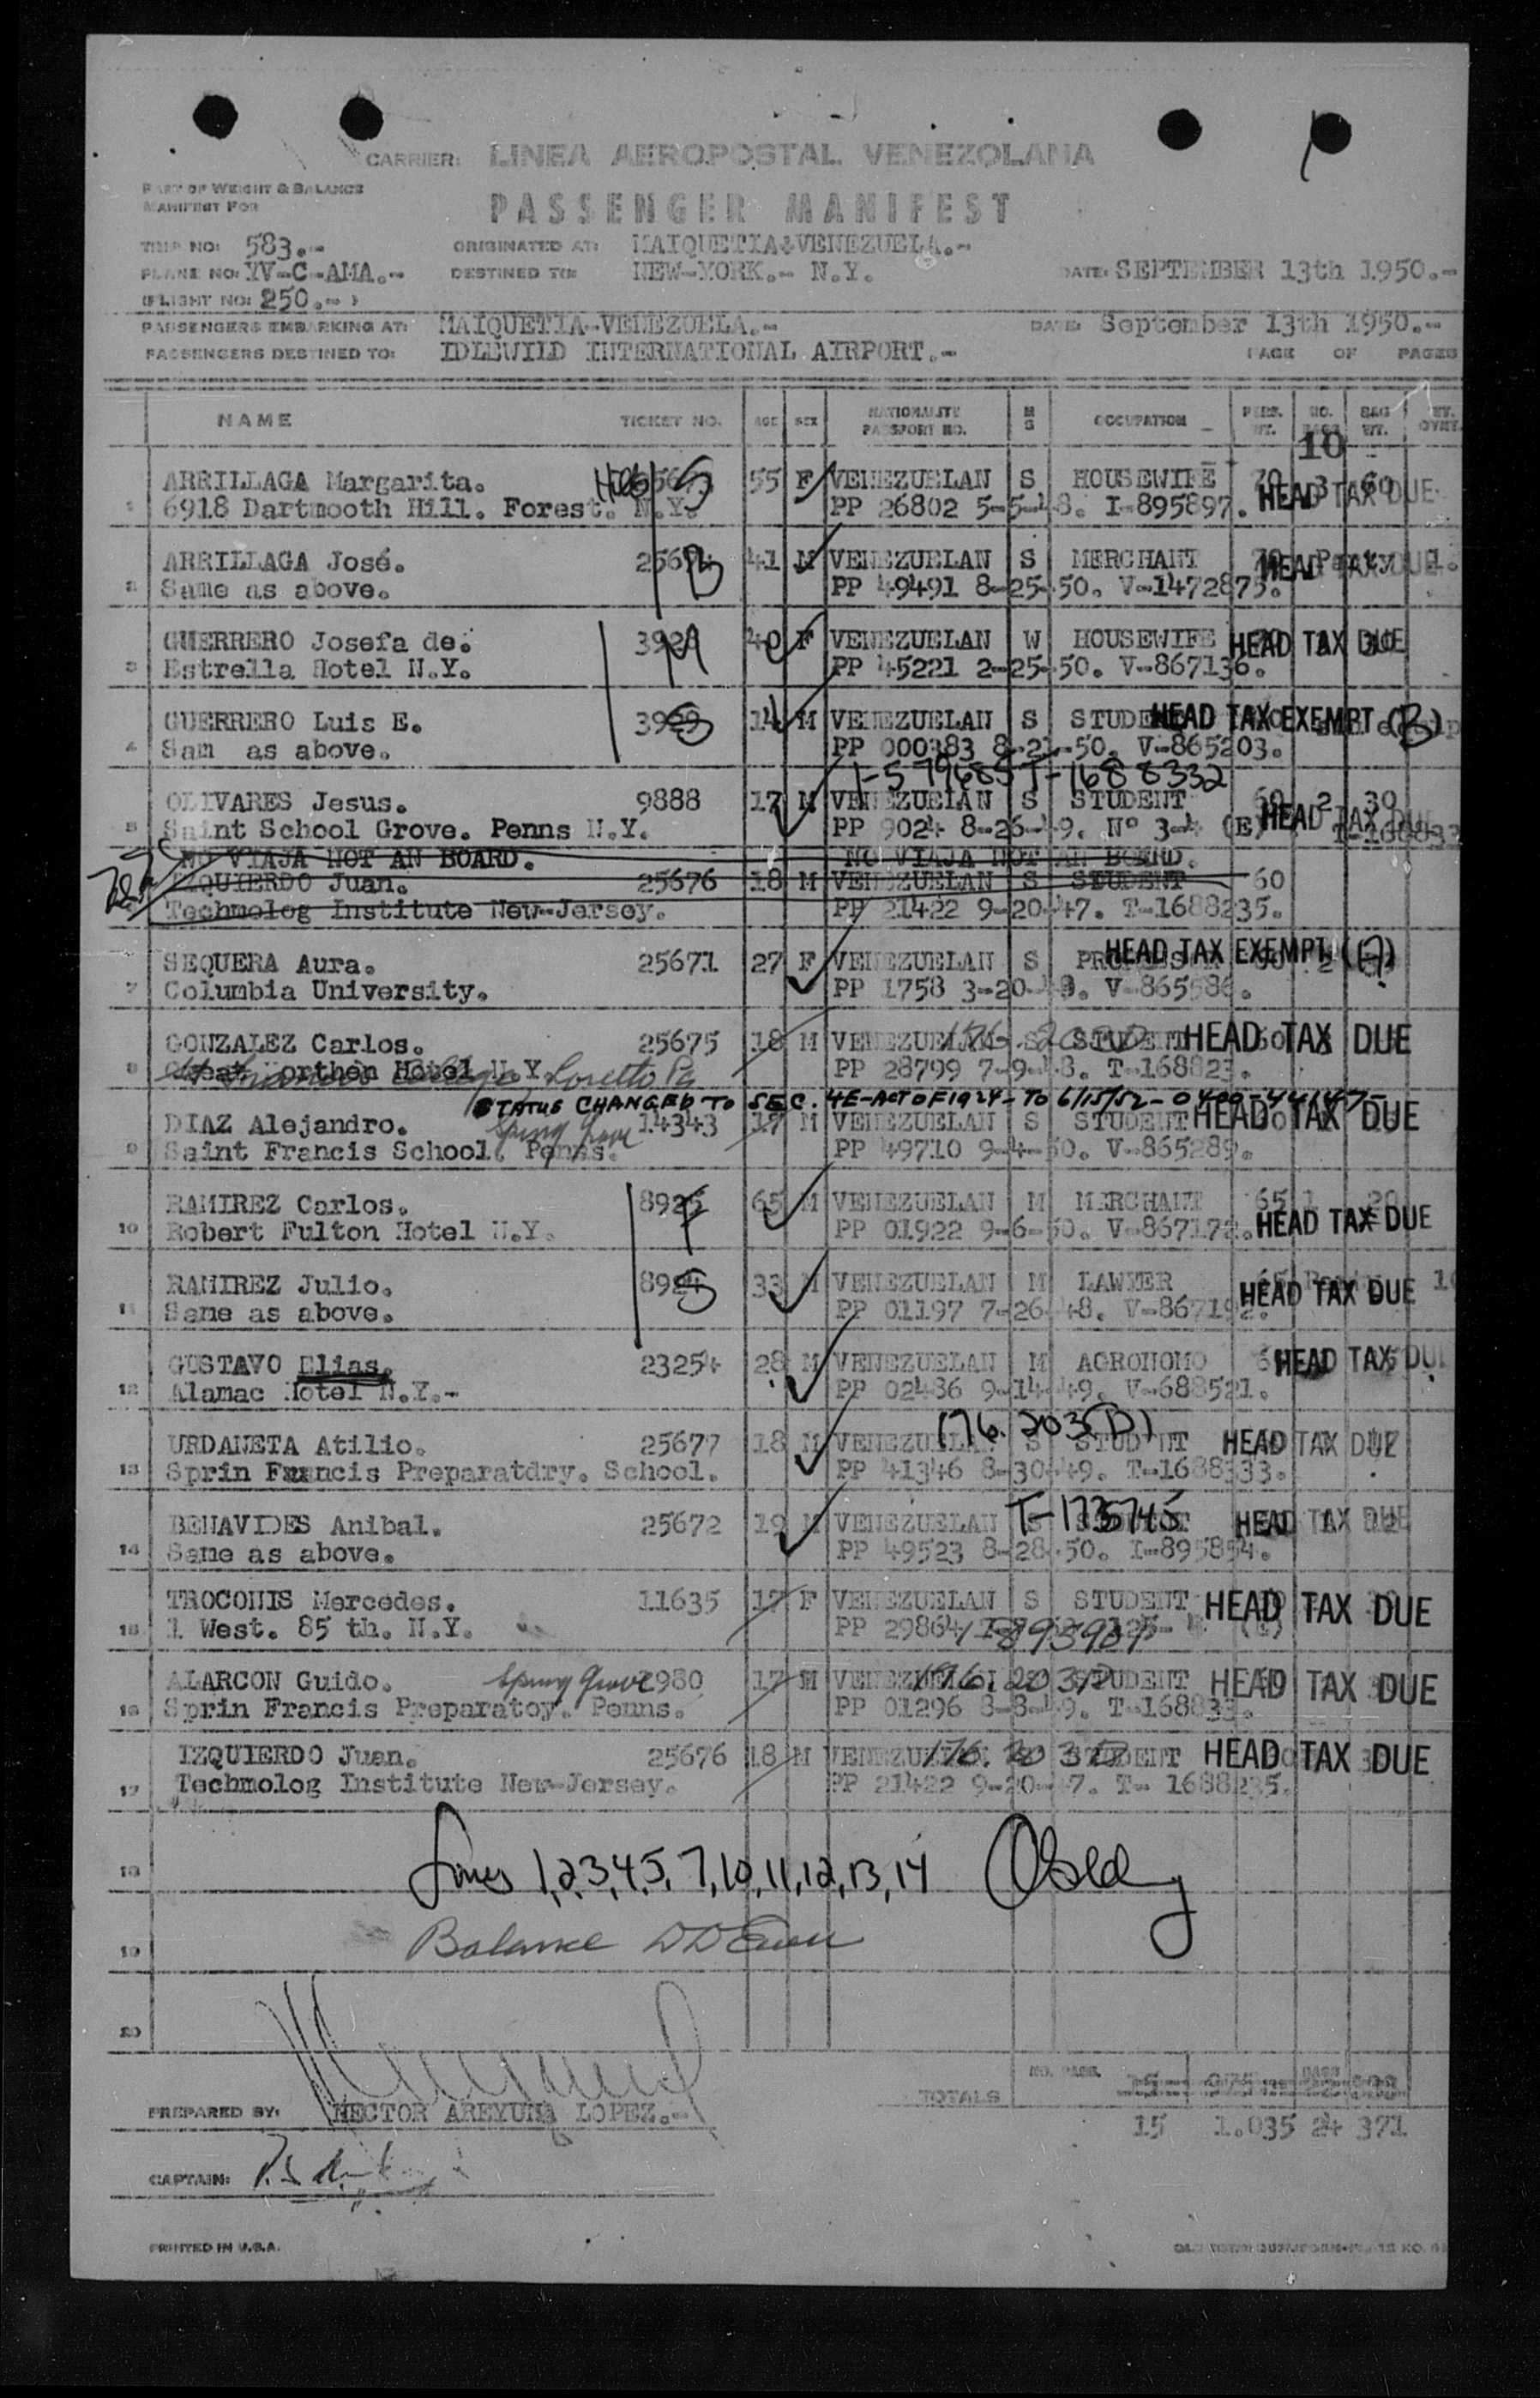 CARRIER: LINEA AEROPOSTAL VENEZOLANA
PART OF WEIGHT & BALANCE
MANIFEST FOR
PASSENGER MANIFEST
TRIP NO: 583.- ORIGINATED AT: MAIQUETIA-VENEZUELA.-
PLANE NO: YV-C-AMA.- DESTINED TO: NEW-YORK.- N.Y. DATE: SEPTEMBER 13th 1950.-
(FLIGHT NO: 250.- )
PASSENGERS EMBARKING AT: MAIQUETIA-VENEZUELA.- DATE: September 13th 1950.-
PASSENGERS DESTINED TO: IDLEWILD INTERNATIONAL AIRPORT.- PAGE OF PAGES
NAME TICKET NO. AGE SEX NATIONALITY PASSPORT NO. M S OCCUPATION PERS. WT. NO. BAGS BAG WT.
10
ARRILLAGA Margarita. S 55 F VENEZUELAN S HOUSEWIFE 70 3 60
1 6918 Dartmooth Hill. Forest. N.Y. PP 26802 5-5-48. I-895897. HEAD TAX DUE
ARRILLAGA José. B 41 M VENEZUELAN S MERCHANT
2 Same as above. PP 49491 8-25-50. V-1472875. HEAD TAX DUE
GUERRERO Josefa de. 40 F VENEZUELAN W HOUSEWIFE HEAD TAX DUE
3 Estrella Hotel N.Y. PP 45221 2-25-50. V-867136.
GUERRERO Luis E. 14 M VENEZUELAN S HEAD TAX EXEMPT (B)
4 Sam as above. PP 000383 8-21-50. V-865203.
T-1688332
OLIVARES Jesus. 9888 17 M VENEZUELAN S STUDENT 60 2 30
5 Saint School Grove. Penns N.Y. PP 9024 8-26-49. Nº 3-4 (E) HEAD TAX DUE
NO VIAJA NOT AN BOARD. NO VIAJA NOT AN BOARD.
IZQUIERDO Juan. 25676 18 M VENEZUELAN S STUDENT 60
Techmolog Institute New-Jersey. PP 21422 9-20-47. T-1688235.
SEQUERA Aura. 25671 27 F VENEZUELAN S HEAD TAX EXEMPT
7 Columbia University. PP 1758 3-20-49. V-865586.
GONZALEZ Carlos. 25675 18 M VENEZUELAN S STUDENT HEAD TAX DUE
8 Hotel N.Y. Loretto Pa PP 28799 7-9-48. T-168823.
STATUS CHANGED TO SEC. 4E-ACT OF 1924- TO 6/15/52-
DIAZ Alejandro. Spring Grove 14343 17 M VENEZUELAN S STUDENT HEAD TAX DUE
9 Saint Francis School. Penns. PP 49710 9-4-50. V-865289.
RAMIREZ Carlos. 65 M VENEZUELAN M MERCHANT 65 1 20
10 Robert Fulton Hotel N.Y. PP 01922 9-6-50. V-867172. HEAD TAX DUE
RAMIREZ Julio. 33 M VENEZUELAN M LAWYER
11 Same as above. PP 01197 7-26-48. V-867192. HEAD TAX DUE
GUSTAVO Elias. 23254 28 M VENEZUELAN M AGRONOMO HEAD TAX DUE
12 Alamac Hotel N.Y.- PP 02486 9-14-49. V-688521.
176.203(D)
URDANETA Atilio. 25677 18 M VENEZUELAN S STUDENT HEAD TAX DUE
13 Sprin Francis Preparatdry. School. PP 41346 8-30-49. T-1688333.
BENAVIDES Anibal. 25672 19 M VENEZUELAN S HEAD TAX DUE
14 Same as above. PP 49523 8-28-50. I-895854.
TROCONIS Mercedes. 11635 17 F VENEZUELAN S STUDENT HEAD TAX DUE
15 1 West. 85 th. N.Y. PP 29864
ALARCON Guido. Spring Grove 980 17 M VENEZUELAN STUDENT HEAD TAX DUE
16 Sprin Francis Preparatoy. Penns. PP 01296 8-8-49. T-168833.
IZQUIERDO Juan. 25676 18 M VENEZUELAN STUDENT HEAD TAX DUE
17 Techmolog Institute New-Jersey. PP 21422 9-20-47. T- 1688235.
18 Lines 1,2,3,4,5, 7,10,11,12,13,14
19 Balance
20
TOTALS NO. PASS.
PREPARED BY: HECTOR AREYUNA LOPEZ.- 15 1.035 24 371
CAPTAIN:
PRINTED IN U.S.A.